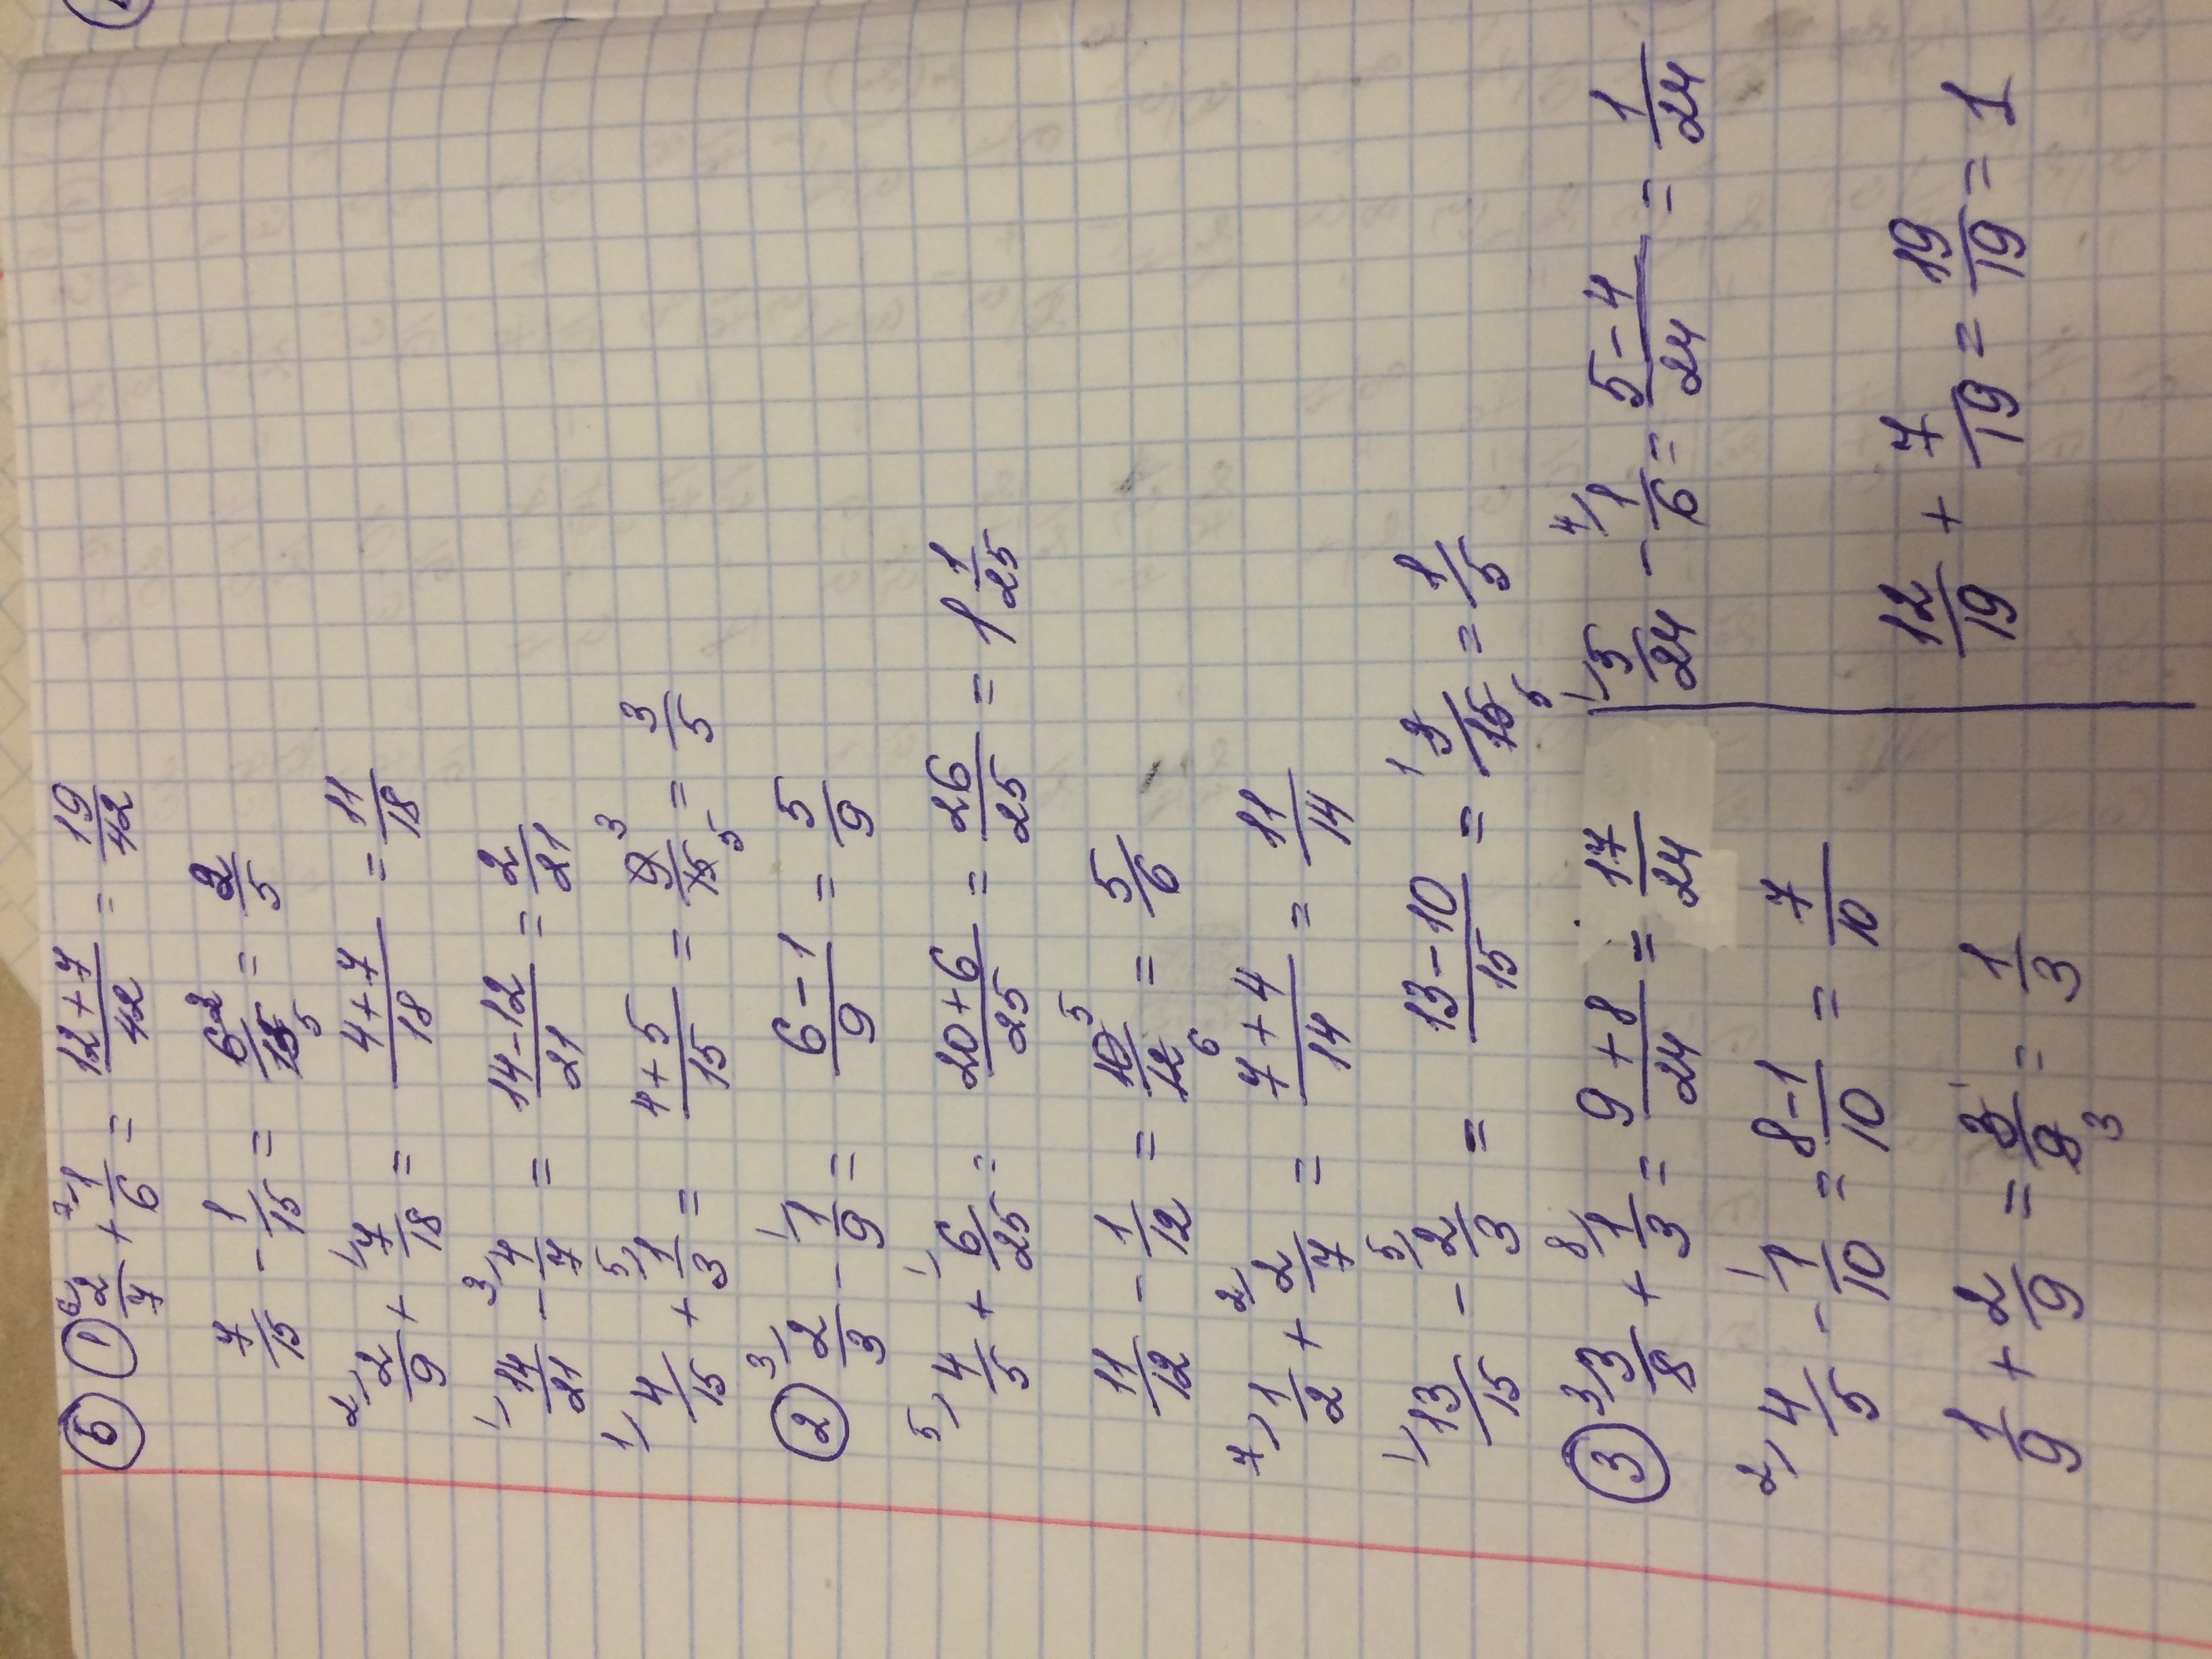 5 1 6) 2/7 + 7) 1/6 = (12+7)/42 = 19/42
7/15 - 1/15 = 6 2/15 5 = 2/5
2) 2/9 + 1) 7/18 = (4+7)/18 = 11/18
1) 14/21 - 3) 4/7 = (14-12)/21 = 2/21
1) 4/15 + 5) 1/3 = (4+5)/15 = 9 3/15 5 = 3/5
2 3) 2/3 - 1) 1/9 = (6-1)/9 = 5/9
5) 4/5 + 1) 6/25 = (20+6)/25 = 26/25 = 1 1/25
11/12 - 1/12 = 10 5/12 6 = 5/6
7) 1/2 + 2) 2/7 = (7+4)/14 = 11/14
1) 13/15 - 5) 2/3 = (13-10)/15 = 1 3/15 5 = 1/5
3 3) 3/8 + 8) 1/3 = (9+8)/24 = 17/24 1) 5/24 - 4) 1/6 = (5-4)/24 = 1/24
2) 4/5 - 1) 1/10 = (8-1)/10 = 7/10
1/9 + 2/9 = 3 1/9 3 = 1/3 12/19 + 7/19 = 19/19 = 1